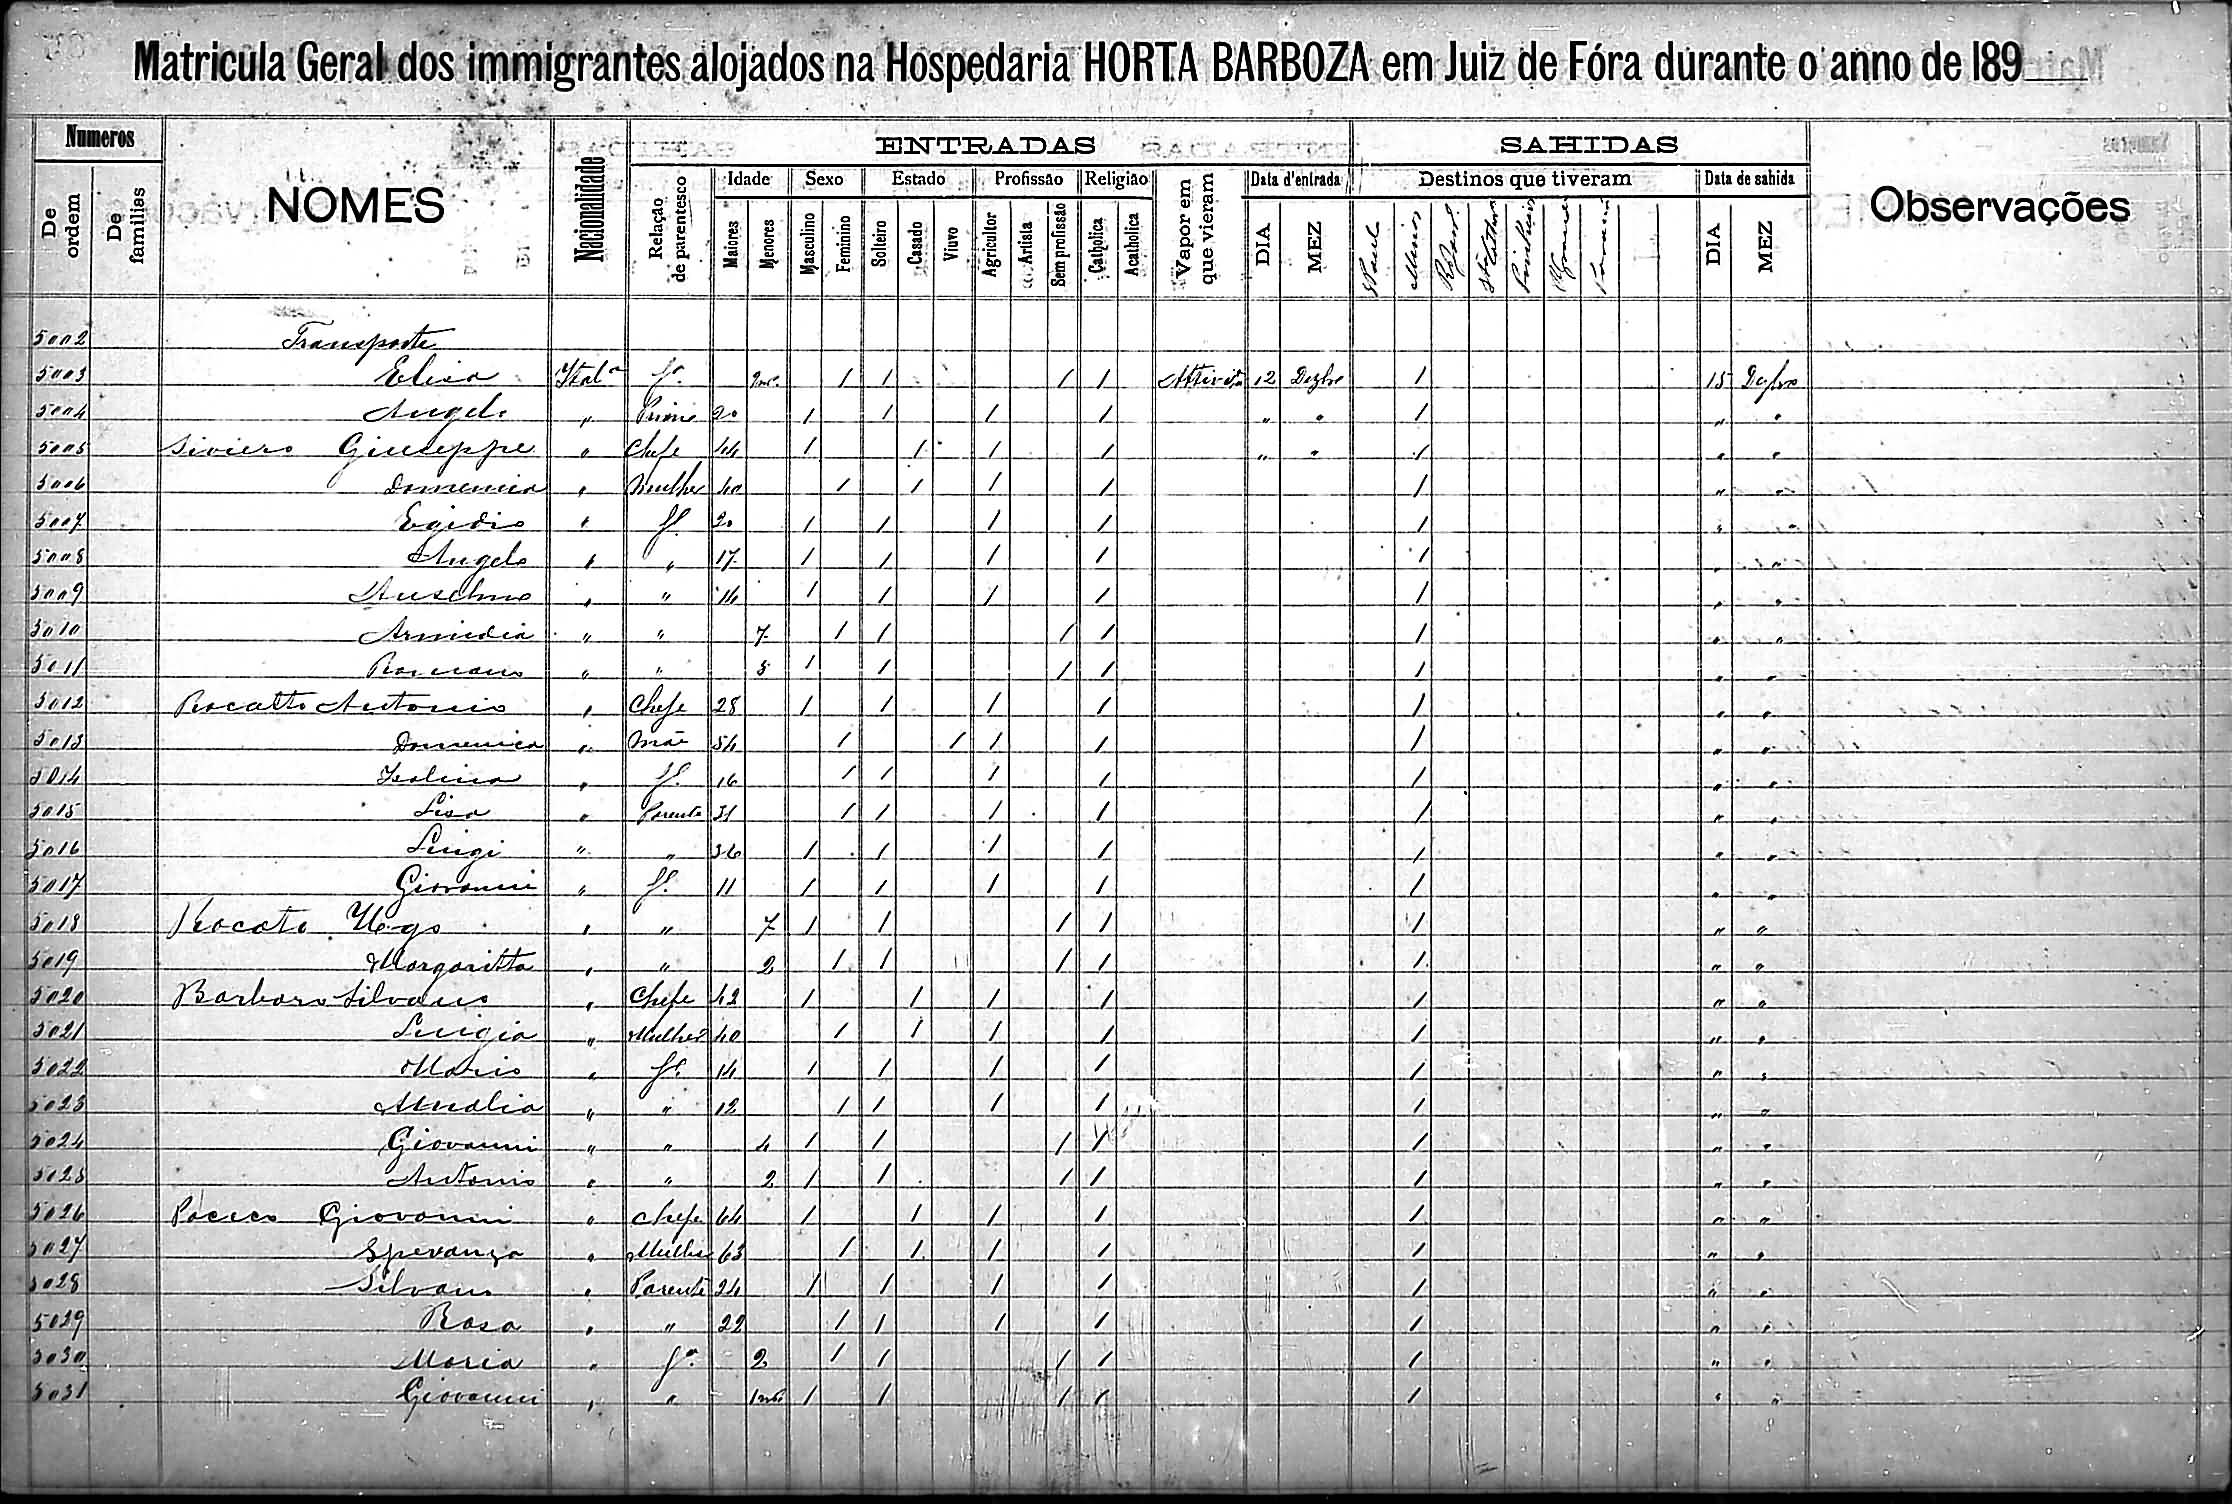 Matricula Geral dos immigrantes alojados na Hospedaria HORTA BARBOZA em Juiz de Fóra durante o anno de 189
Numeros NOMES Nacionalidade ENTRADAS SAHIDAS Observações
De ordem De familias Relação de parentesco Idade Sexo Estado Profissão Religião Vapor em que vieram Data d'entrada Destinos que tiveram Data de sahida
Maiores Menores Masculino Feminino Solteiro Casado Viuvo Agricultor Artista Sem profissão Catholica Acatholica DIA MEZ Minas DIA MEZ
5002 Transporte
5003 Elisa Ital.ª f.ª 1 1 1 1 12 Dezbro 1 15 Dezbro
5004 Angelo " Primo 20 1 1 1 1 " " 1 " "
5005 Siviero Giuseppe " Chefe 44 1 1 1 1 " " 1 " "
5006 Domenica " Mulher 40 1 1 1 1 1 " "
5007 Egidio " f.º 20 1 1 1 1 1 " "
5008 Angelo " " 17 1 1 1 1 1 " "
5009 Anselmo " " 14 1 1 1 1 1 " "
5010 Armidia " " 7 1 1 1 1 1 " "
5011 Romano " " 5 1 1 1 1 1 " "
5012 Antonio " Chefe 28 1 1 1 1 1 " "
5013 Domenica " Mãe 54 1 1 1 1 1 " "
5014 Isolina " f.ª 16 1 1 1 1 1 " "
5015 Lisa " Parente 31 1 1 1 1 1 " "
5016 Luigi " " 36 1 1 1 1 1 " "
5017 Giovanni " f.º 11 1 1 1 1 1 " "
5018 Ugo " " 7 1 1 1 1 1 " "
5019 Margaritta " " 2 1 1 1 1 1 " "
5020 Barbaro Silvano " Chefe 42 1 1 1 1 1 " "
5021 Luigia " Mulher 40 1 1 1 1 1 " "
5022 Mario " f.º 14 1 1 1 1 1 " "
5023 Amalia " " 12 1 1 1 1 1 " "
5024 Giovanni " " 4 1 1 1 1 1 " "
5025 Antonio " " 2 1 1 1 1 1 " "
5026 Giovanni " Chefe 64 1 1 1 1 1 " "
5027 Speranza " Mulher 63 1 1 1 1 1 " "
5028 Silvano " Parente 24 1 1 1 1 1 " "
5029 Rosa " " 22 1 1 1 1 1 " "
5030 Maria " f.ª 2 1 1 1 1 1 " "
5031 Giovanni " " 1 1 1 1 1 " "